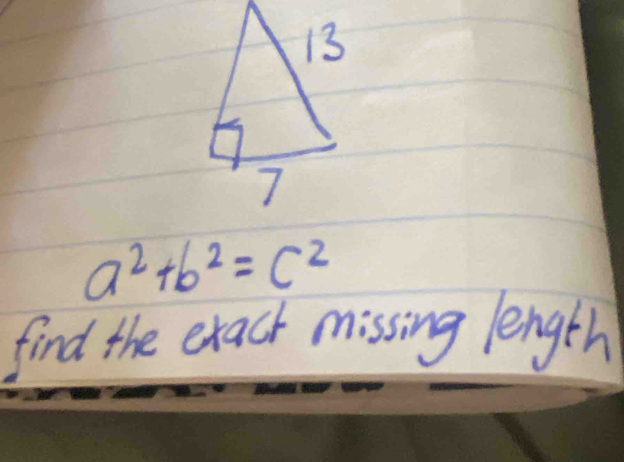 13
7
a² + b² = c²
find the exact missing length